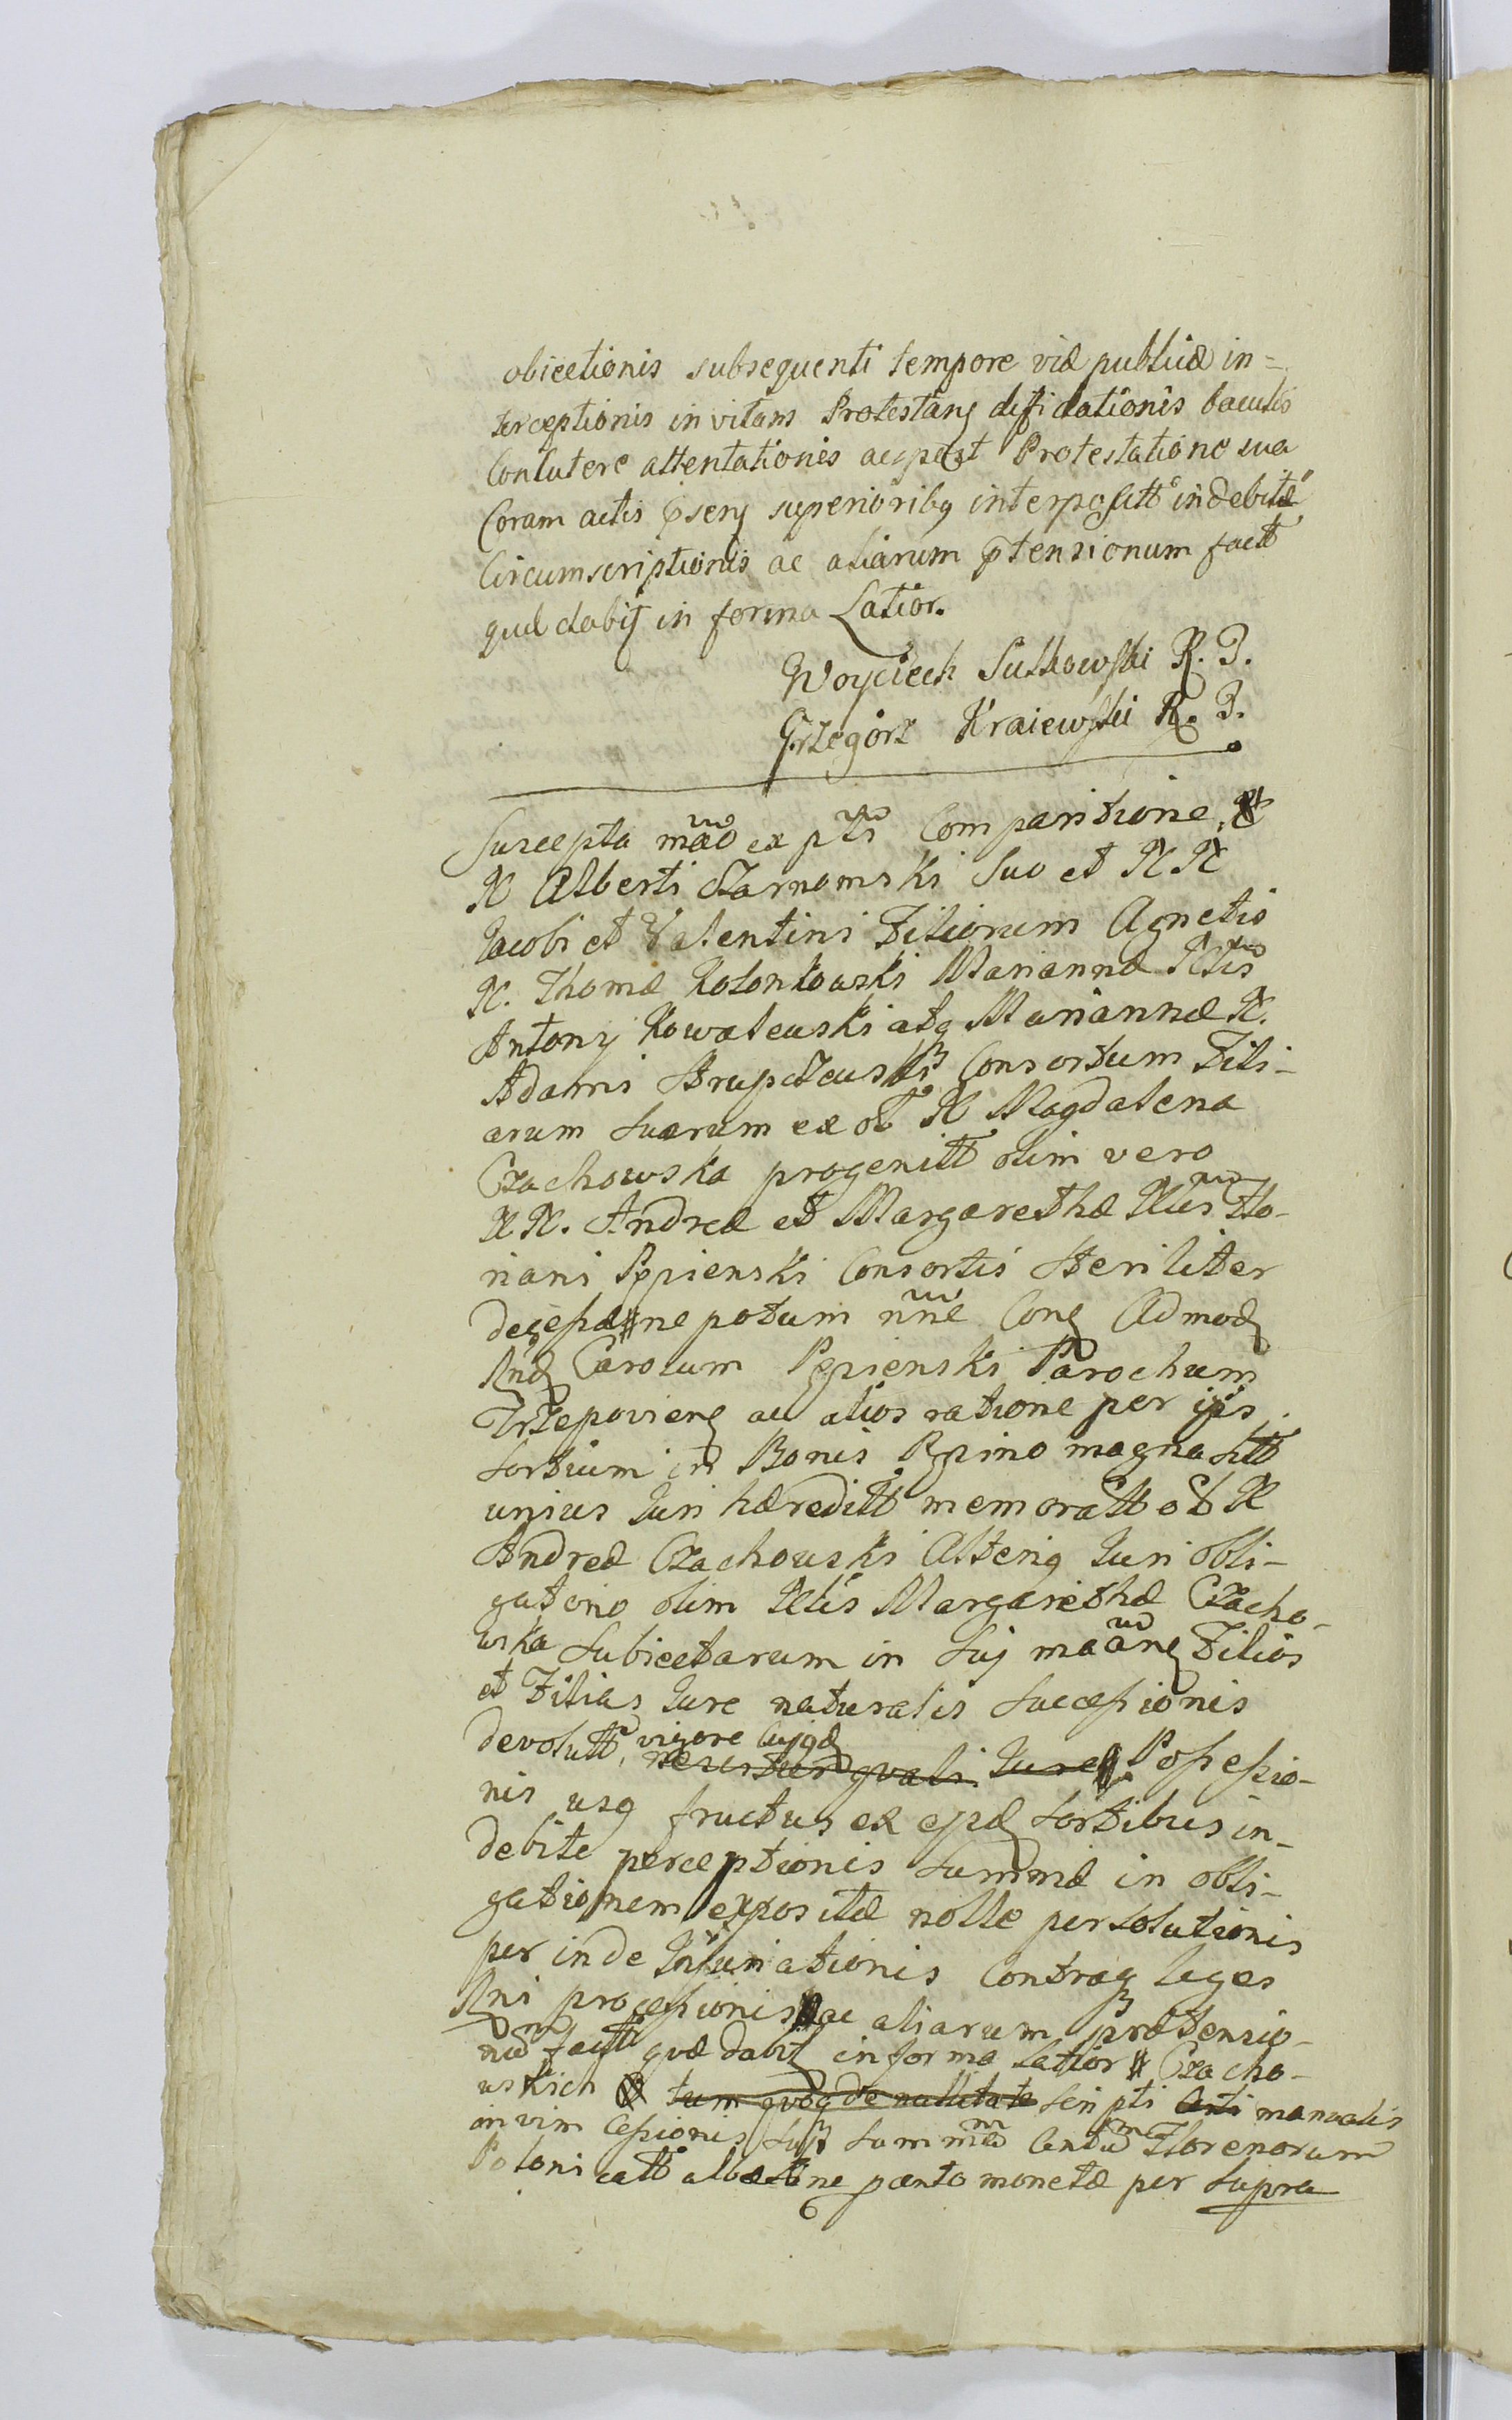 obiectionis subsequenti tempore viæ publicæ in=
terceptionis in vitam Protestang diffidationis baculis
Contutere attentationis ac post Protestatione sua
Coram actis pserg superioribq interpositt indebitæ
Circumscriptionis ac aliarum ptensionum factt
quæ dabit in forma Latior.
Woyciech Sutkowski R. P.
Grzegorz Kraiewski R. P.
Suscepta mão ex pts Comparitione, &
N Alberti Czarnomski Suo et N N
Jacobi et Valentini Filiorum Agnetis
N. Thomæ Kolonkowski Mariannæ Nlis
Antony Kowalewski atq Mariannæ N.
Adami Krupczewski Consortum Fili-
arum Suarum ex ol N Magdalena
Czachowska progenitt olim vero
N N. Andreæ et Margarethæ Nlis Flo-
riani Pepienski Consortis Steriliter
decessæ nepotum nne Cong Admod
Rnd Carolum Pepienski Parochum
Trzepovieng ac alios ratione per ips
Sortium in Bonis Rypino magna sitt
unius Juri hæreditt memoratt ol N
Andreæ Czachowski Alterig Juri obli-
gatorio olim Nlis Margarethæ Czacho-
wska Subiectarum in Suj mãang Filios
et Filias Jure naturalis Successionis
devolutt, vigore cujqd
Jure Possessio-
nis usq fructus ex ejsd Sortibus in-
debite perceptionis Summæ in obli-
gationem expositæ nolle persolutionis
perinde Injuriationis Contraq leges
Rni processionis ac aliarum prætensio-
nu factt quæ dabit in forma latior # Czacho-
wskich tum quoq de nullitate Scripti manualis
in vim Cessionis Sup Summæ Centu Florenorum
Polonicatt albæ ne panta monetæ per Supra